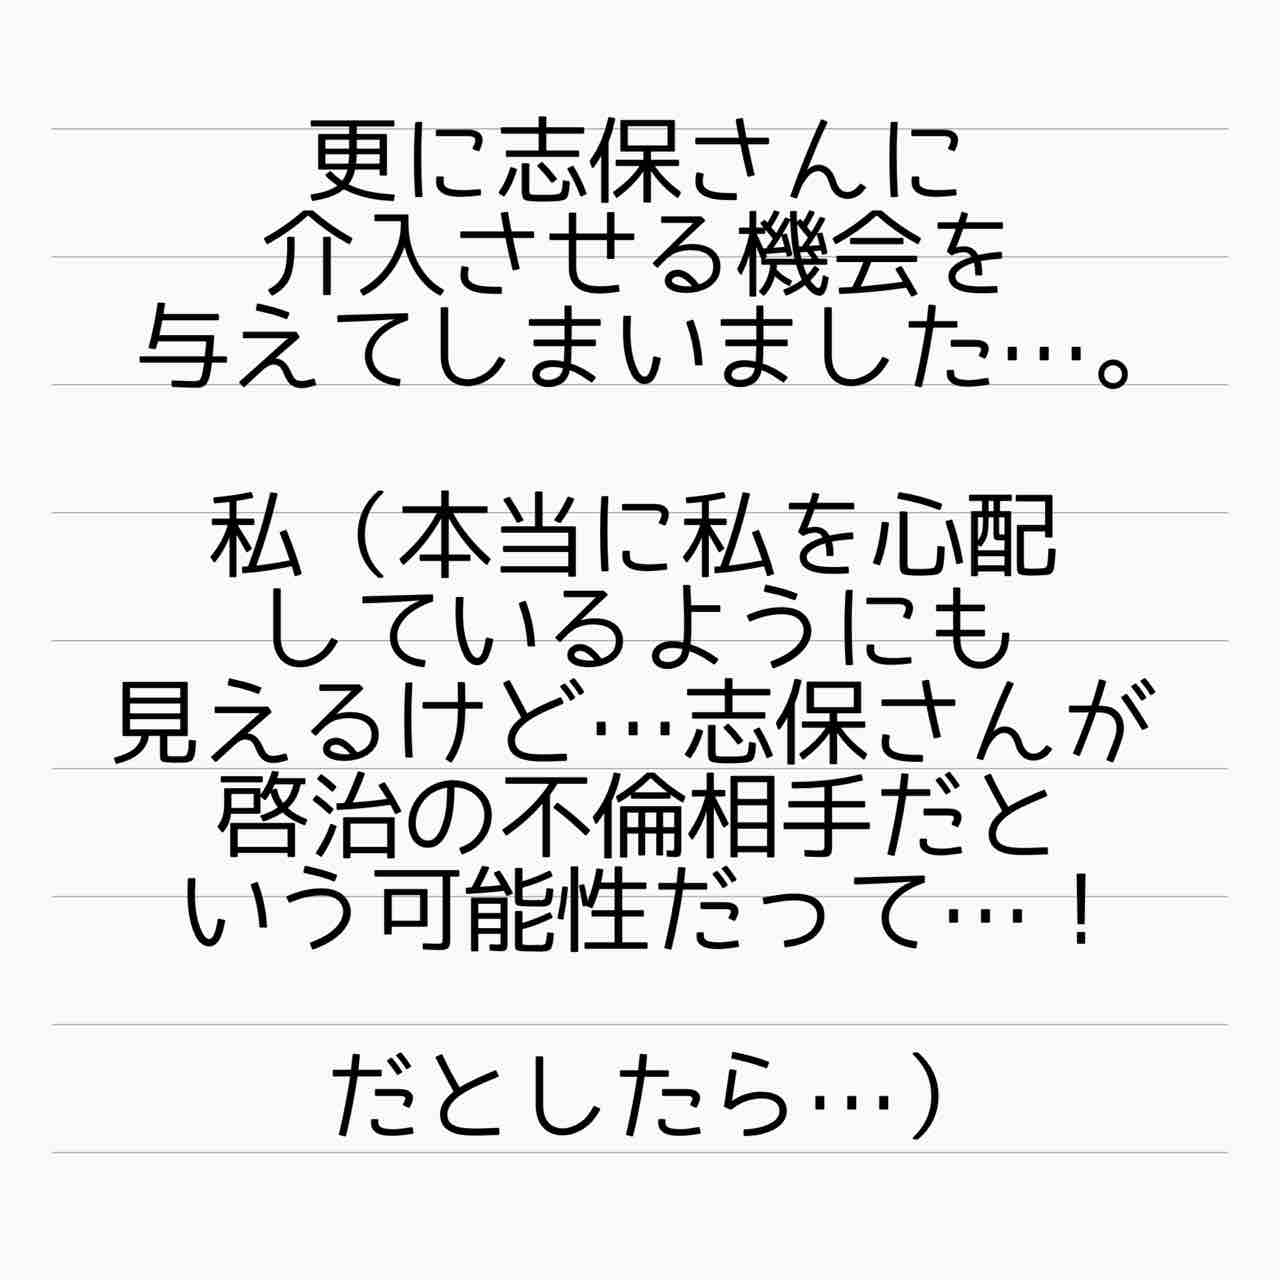 更に志保さんに
介入させる機会を
与えてしまいました…。
私（本当に私を心配
しているようにも
見えるけど…志保さんが
啓治の不倫相手だと
いう可能性だって…！
だとしたら…）